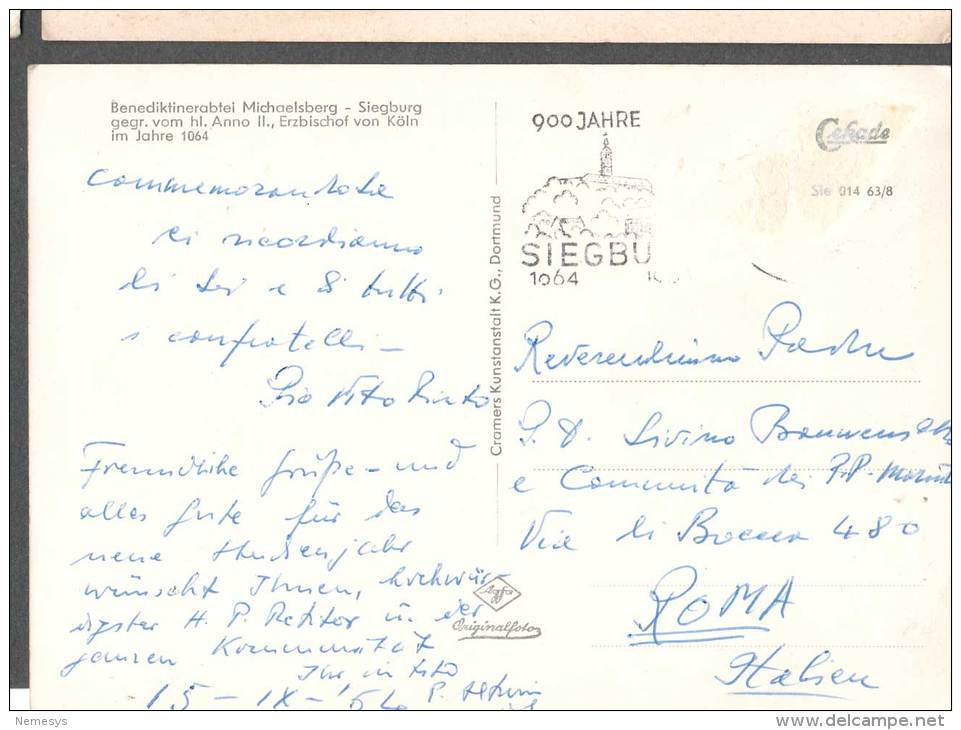 Benediktinerabtei Michaelsberg - Siegburg
gegr. vom hl. Anno II., Erzbischof von Köln
im Jahre 1064
Commemorandola
ci ricordiamo
di Lei e di tutti
i confratelli -
Pio Vito Pinto
Freundliche Grüße - und
alles Gute für das
neue Studienjahr
wünscht Ihnen, hochwür-
digster H. P. Rektor u. der
ganzen Kommunität
Ihr in
15 - IX - '64 P.
Cramers Kunstanstalt K.G., Dortmund
Agfa
Originalfoto
900 JAHRE
SIEGBU
1064
Cekade
Sie 914 63/8
Reverendissimo Padre
P. D. Livino
e Comunità dei P.P.
Via di Boccea 480
ROMA
Italien
Nemesys
delcampe.net